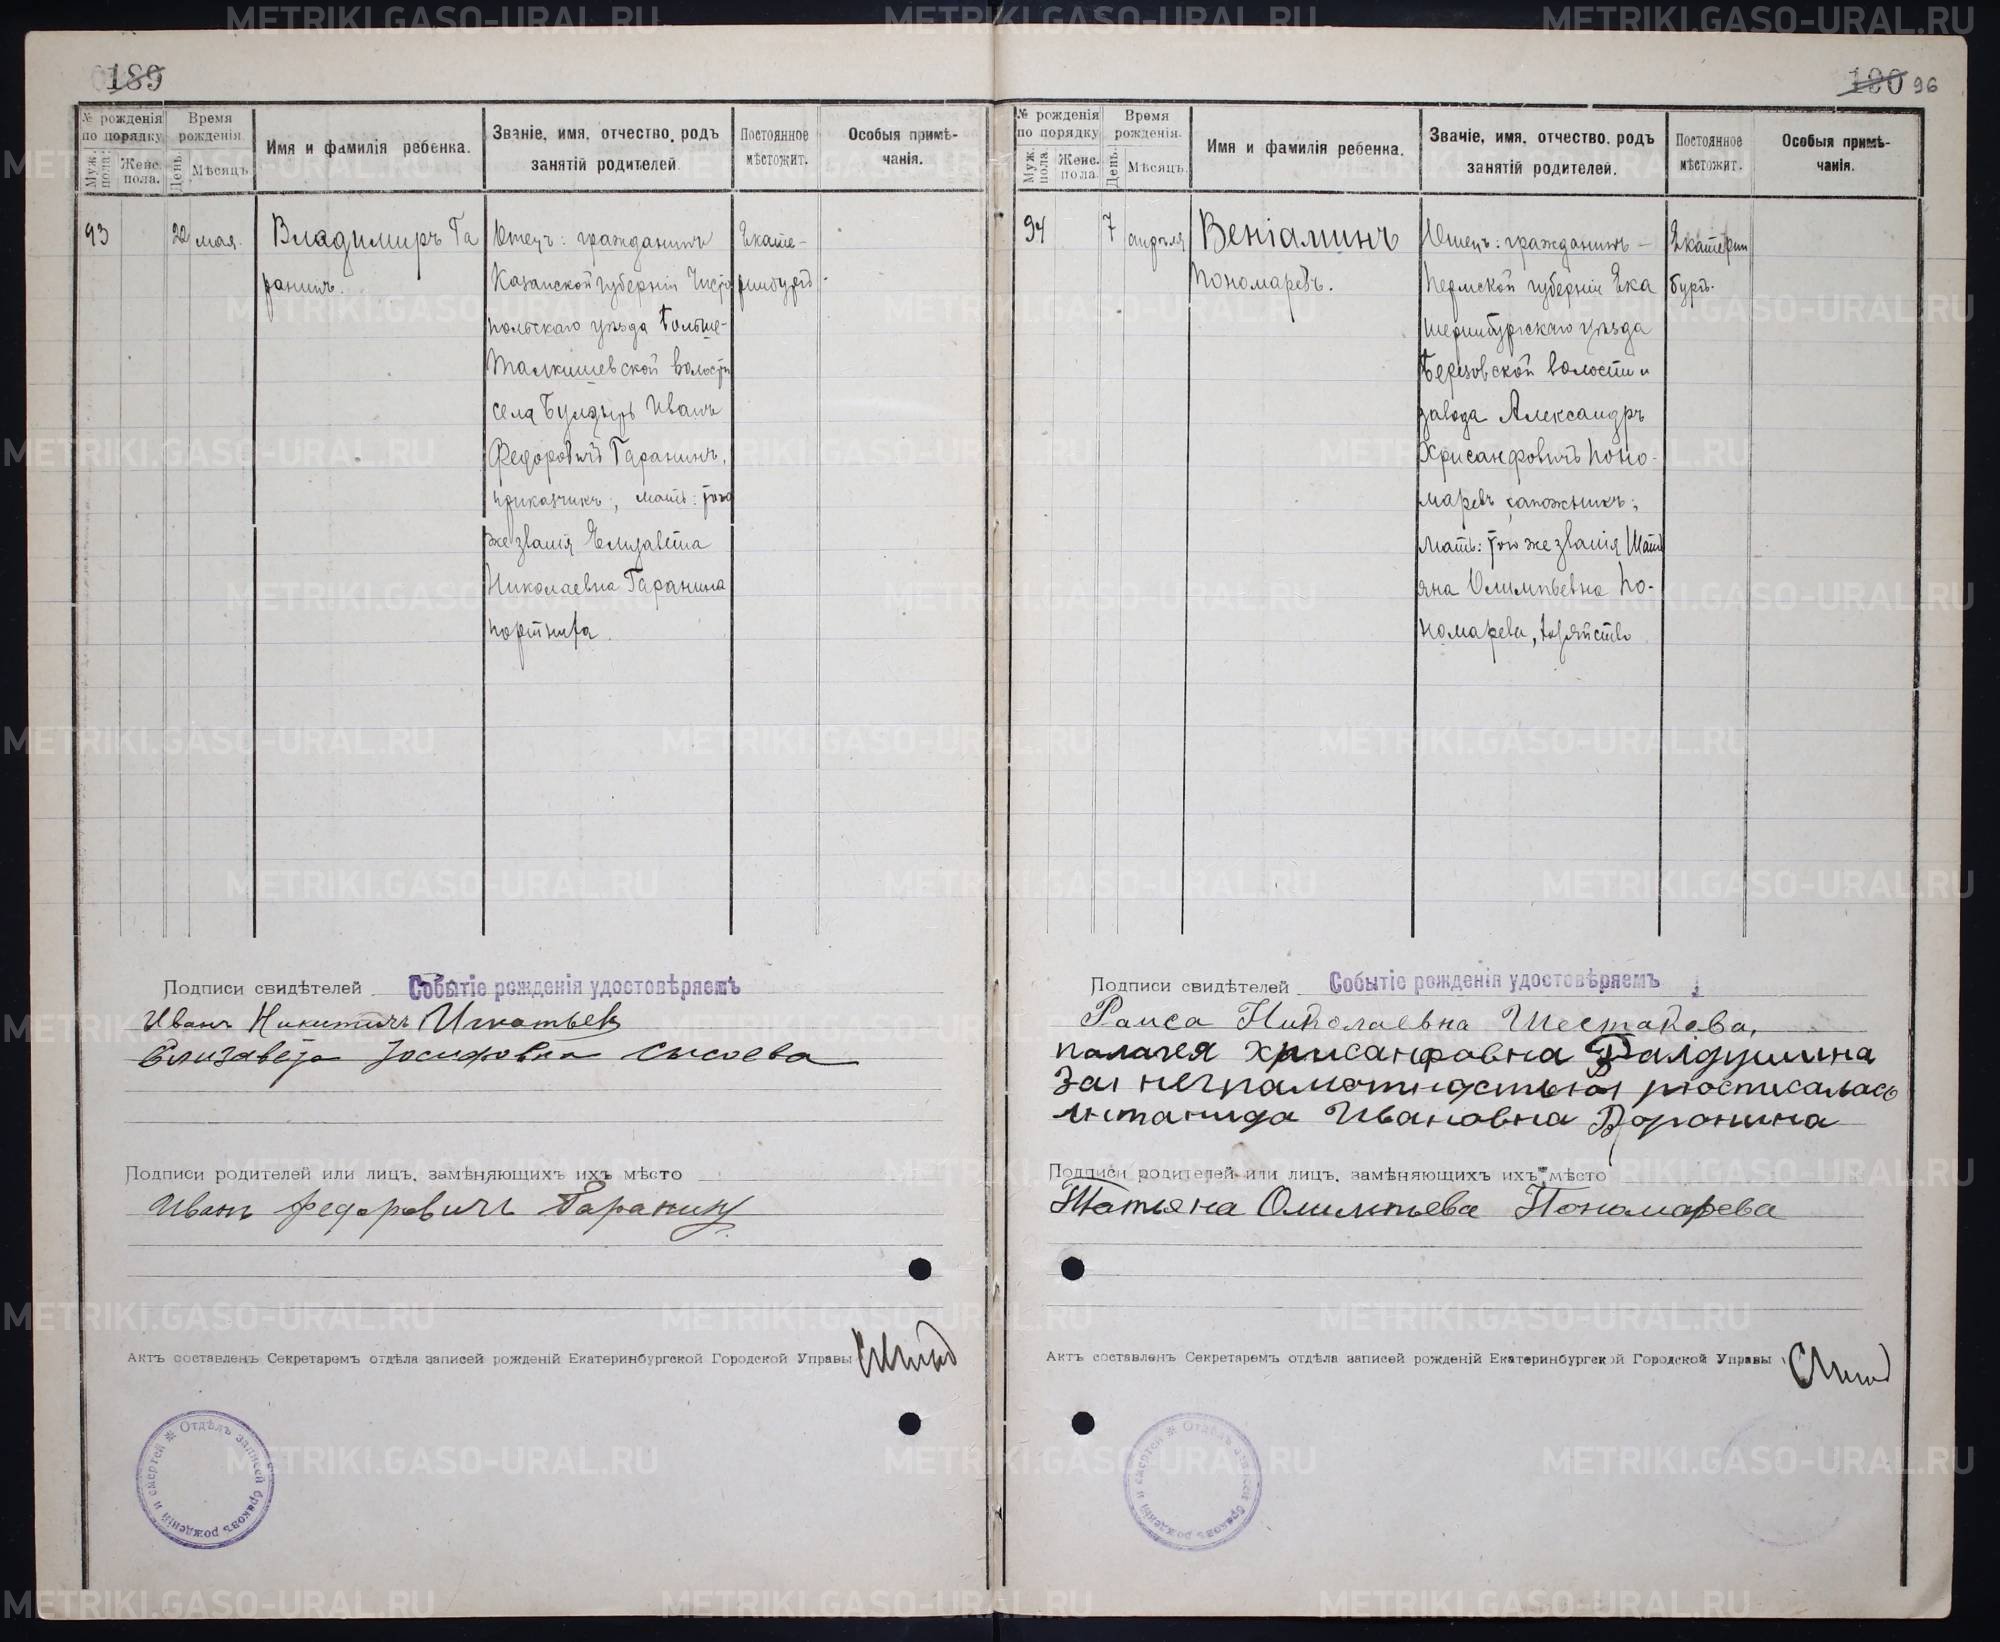 189
№ рожденія по порядку
Время рожденія.
Имя и фамилія ребенка.
Званіе, имя, отчество, родъ занятій родителей.
Постоянное мѣстожит.
Особыя примѣчанія.
Муж. пола.
Женс. пола.
День.
Мѣсяцъ.
93
22 мая.
Владимиръ Га
ранинъ.
Отецъ: гражданинъ
Казанской губерніи Чисто
польскаго уѣзда Больше-
Толкишевской волости
села Булдырь Иванъ
Федоровичъ Гаранинъ,
приказчикъ; мать: того
же званія Елизавета
Николаевна Гаранина
портниха.
Екате-
ринбургъ
Подписи свидѣтелей Событіе рожденія удостовѣряемъ
Иванъ Никитичъ Игнатьев
Елизавета Іосифовна Сысоева
Подписи родителей или лицъ, замѣняющихъ ихъ мѣсто
Иванъ Федоровичъ Гаранинъ
Актъ составленъ Секретаремъ отдѣла записей рожденій Екатеринбургской Городской Управы
Отдѣлъ записей браковъ рожденій и смертей
190 96
№ рожденія по порядку
Время рожденія.
Имя и фамилія ребенка.
Званіе, имя, отчество, родъ занятій родителей.
Постоянное мѣстожит.
Особыя примѣчанія.
Муж. пола.
Женс. пола.
День.
Мѣсяцъ.
94
7 апрѣля
Веніаминъ
Пономаревъ.
Отецъ: гражданинъ –
Пермской губерніи Ека
теринбургскаго уѣзда
Березовской волости и
завода Александръ
Хрисанфовичъ Поно-
маревъ сапожникъ;
мать: того же званія Тать
яна Олимпьевна По-
номарева, хозяйство
Екатерин
бургъ.
Подписи свидѣтелей Событіе рожденія удостовѣряемъ
Раиса Николаевна Шестакова,
Палагея Хрисанфовна Балдушина
За неграмотностью росписалась
Воронина
Подписи родителей или лицъ, замѣняющихъ ихъ мѣсто
Татьяна Олимпьева Пономарева
Актъ составленъ Секретаремъ отдѣла записей рожденій Екатеринбургской Городской Управы
Отдѣлъ записей браковъ рожденій и смертей
METRIKI.GASO-URAL.RU